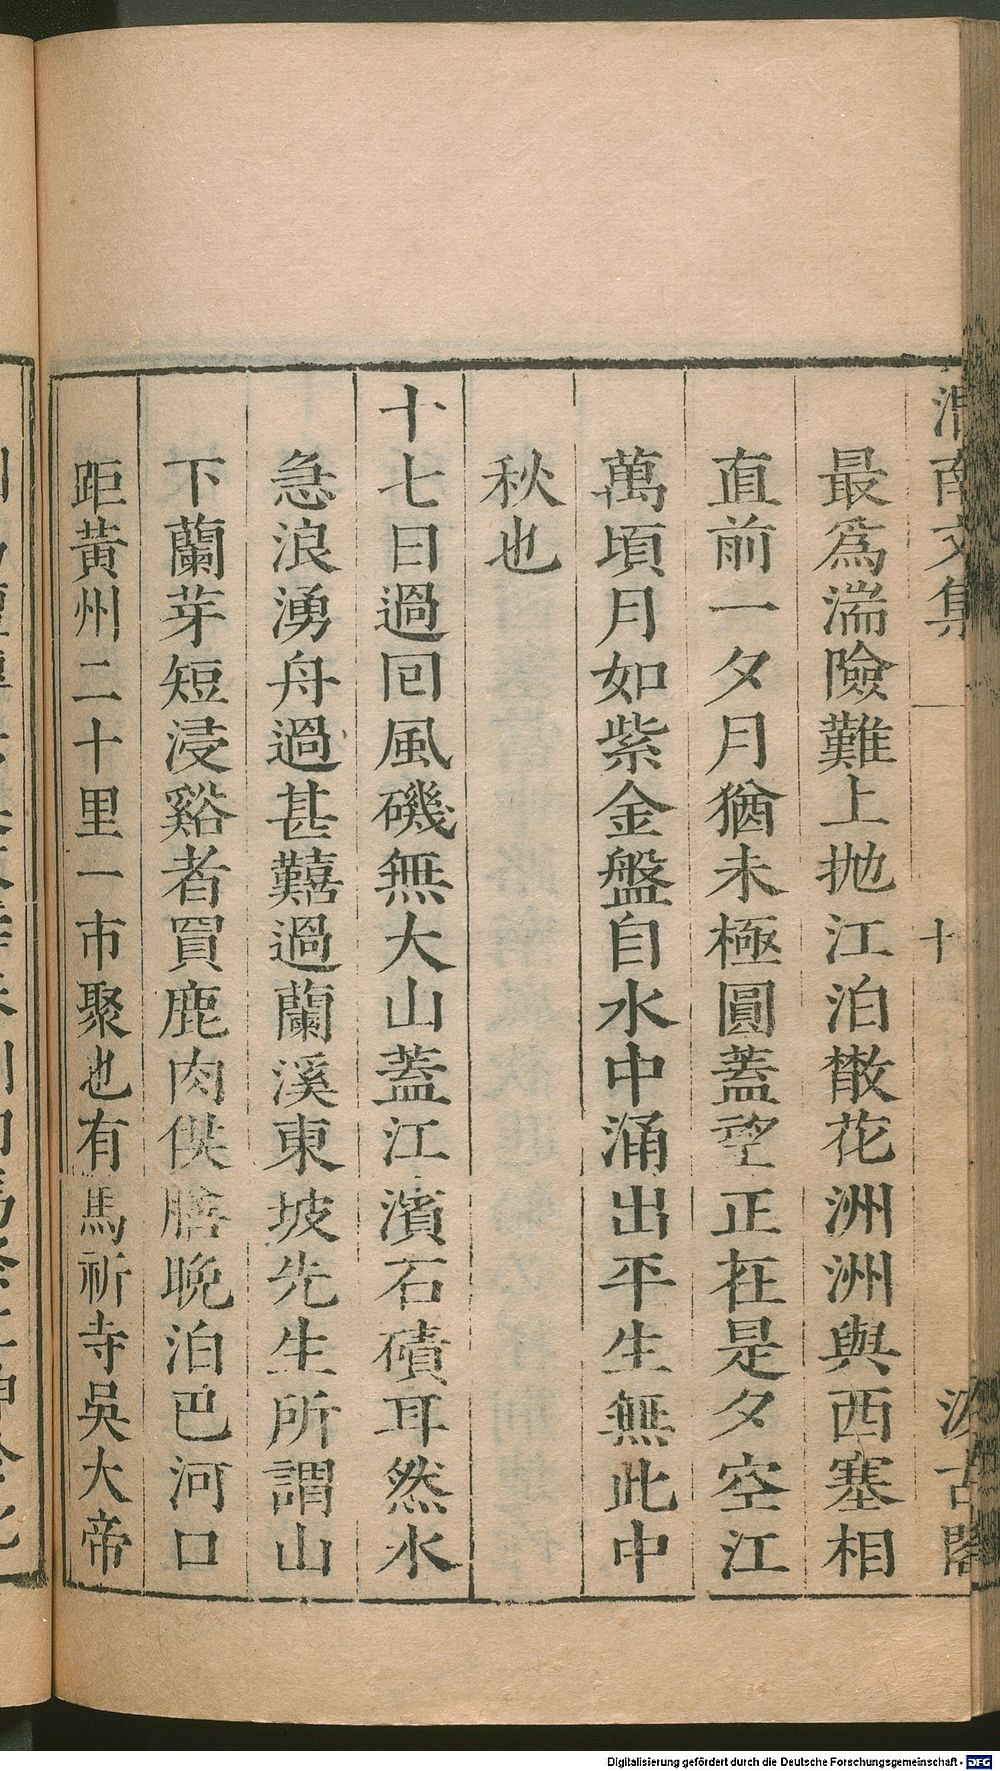 渭南文集
十
汲古閣
最為湍險難上抛江泊㪚花洲洲與西塞相
直前一夕月猶未極圓蓋望正在是夕空江
萬頃月如紫金盤自水中涌出平生無此中
秋也
十七日過回風磯無大山蓋江濱石磧耳然水
急浪湧舟過甚囏過蘭溪東坡先生所謂山
下蘭芽短浸谿者買鹿肉供膳晚泊巴河口
距黃州二十里一市聚也有馬祈寺吳大帝
Digitalisierung gefördert durch die Deutsche Forschungsgemeinschaft - DFG